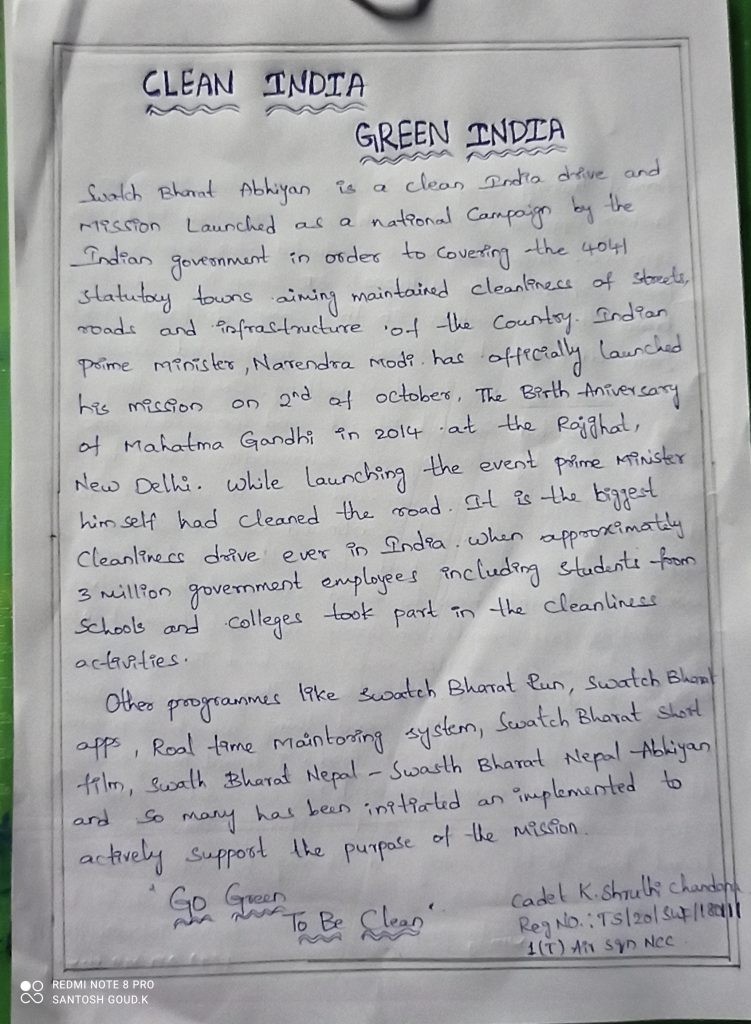 CLEAN INDIA
GREEN INDIA
Swatch Bharat Abhiyan is a clean India drive and
Mission Launched as a national Campaign by the
Indian government in order to covering the 4041
statutory towns aiming maintained cleanliness of streets,
roads and infrastructure of the Country. Indian
prime minister, Narendra Modi has officially launched
his mission on 2nd of october, The Birth Aniversary
of Mahatma Gandhi in 2014 at the Rajghat,
New Delhi. While launching the event prime Minister
him self had cleaned the road. It is the biggest
Cleanliness drive ever in India. when approximately
3 million government employees including students from
Schools and colleges took part in the cleanliness
activities.
Other programmes like Swatch Bharat Run, Swatch Bharat
apps, Roal time maintoring system, Swatch Bharat short
film, Swath Bharat Nepal - Swasth Bharat Nepal Abhiyan
and so many has been initiated an implemented to
actively support the purpose of the mission.
"Go Green
To Be Clean"
Cadet K. Shruthi Chandana
Reg No.: TS/20/
1(T) Air Sqn Ncc
REDMI NOTE 8 PRO
SANTOSH GOUD.K